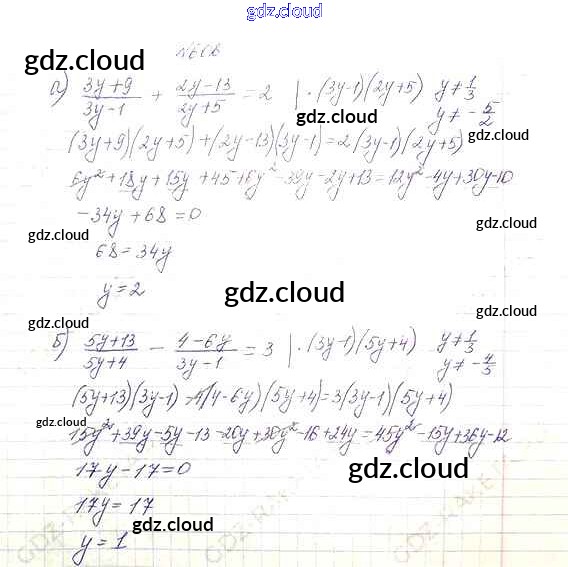 gdz.cloud
№ 602
gdz.cloud gdz.cloud
а) (3y+9)/(3y-1) + (2y-13)/(2y+5) = 2 | ·(3y-1)(2y+5) y≠1/3
y≠ -5/2
gdz.cloud gdz.cloud
(3y+9)(2y+5)+(2y-13)(3y-1)=2(3y-1)(2y+5)
6y²+18y+15y+45+6y²-39y-2y+13=12y²-4y+30y-10
gdz.cloud
-34y+68=0
gdz.cloud
68=34y
gdz.cloud
y=2
gdz.cloud
б) (5y+13)/(5y+4) - (4-6y)/(3y-1) = 3 | ·(3y-1)(5y+4) y≠1/3
y≠ -4/5
gdz.cloud gdz.cloud
(5y+13)(3y-1)-1(4-6y)(5y+4)=3(3y-1)(5y+4)
gdz.cloud gdz.cloud
15y²+39y-5y-13-20y+30y²-16+24y=45y²-15y+36y-12
17y-17=0
gdz.cloud
17y=17
gdz.cloud
gdz.cloud
y=1